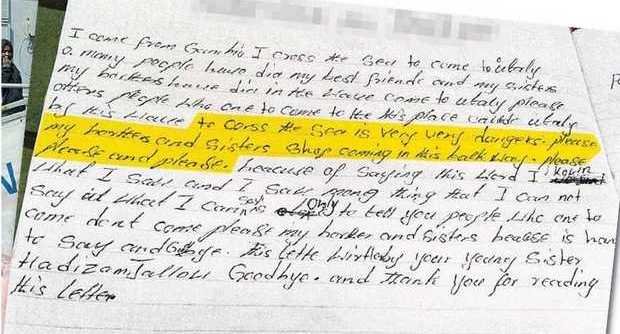 I come from Gambia I cross the Sea to come to utaly
a many people have dia my best friends and my sisters
my borkers have dia in the Liave come to utaly please
others people Like one to come to the this place callde utaly
by this Liave to corss the Sea is Very very dangers. please
my borthers and Sisters Stop coming in this balk Way. please
please and please. because of Saying this Word I kowin
What I Saw and I Saw meng thing that I can not
Say it What I can say is only to tell you people Like one to
come dont come please my borker and Sisters because is hard
to Say and Gdbye. this lette Writby your young Sister
Hadizam Jallow Goodbye. and thank you for reading
this Letter